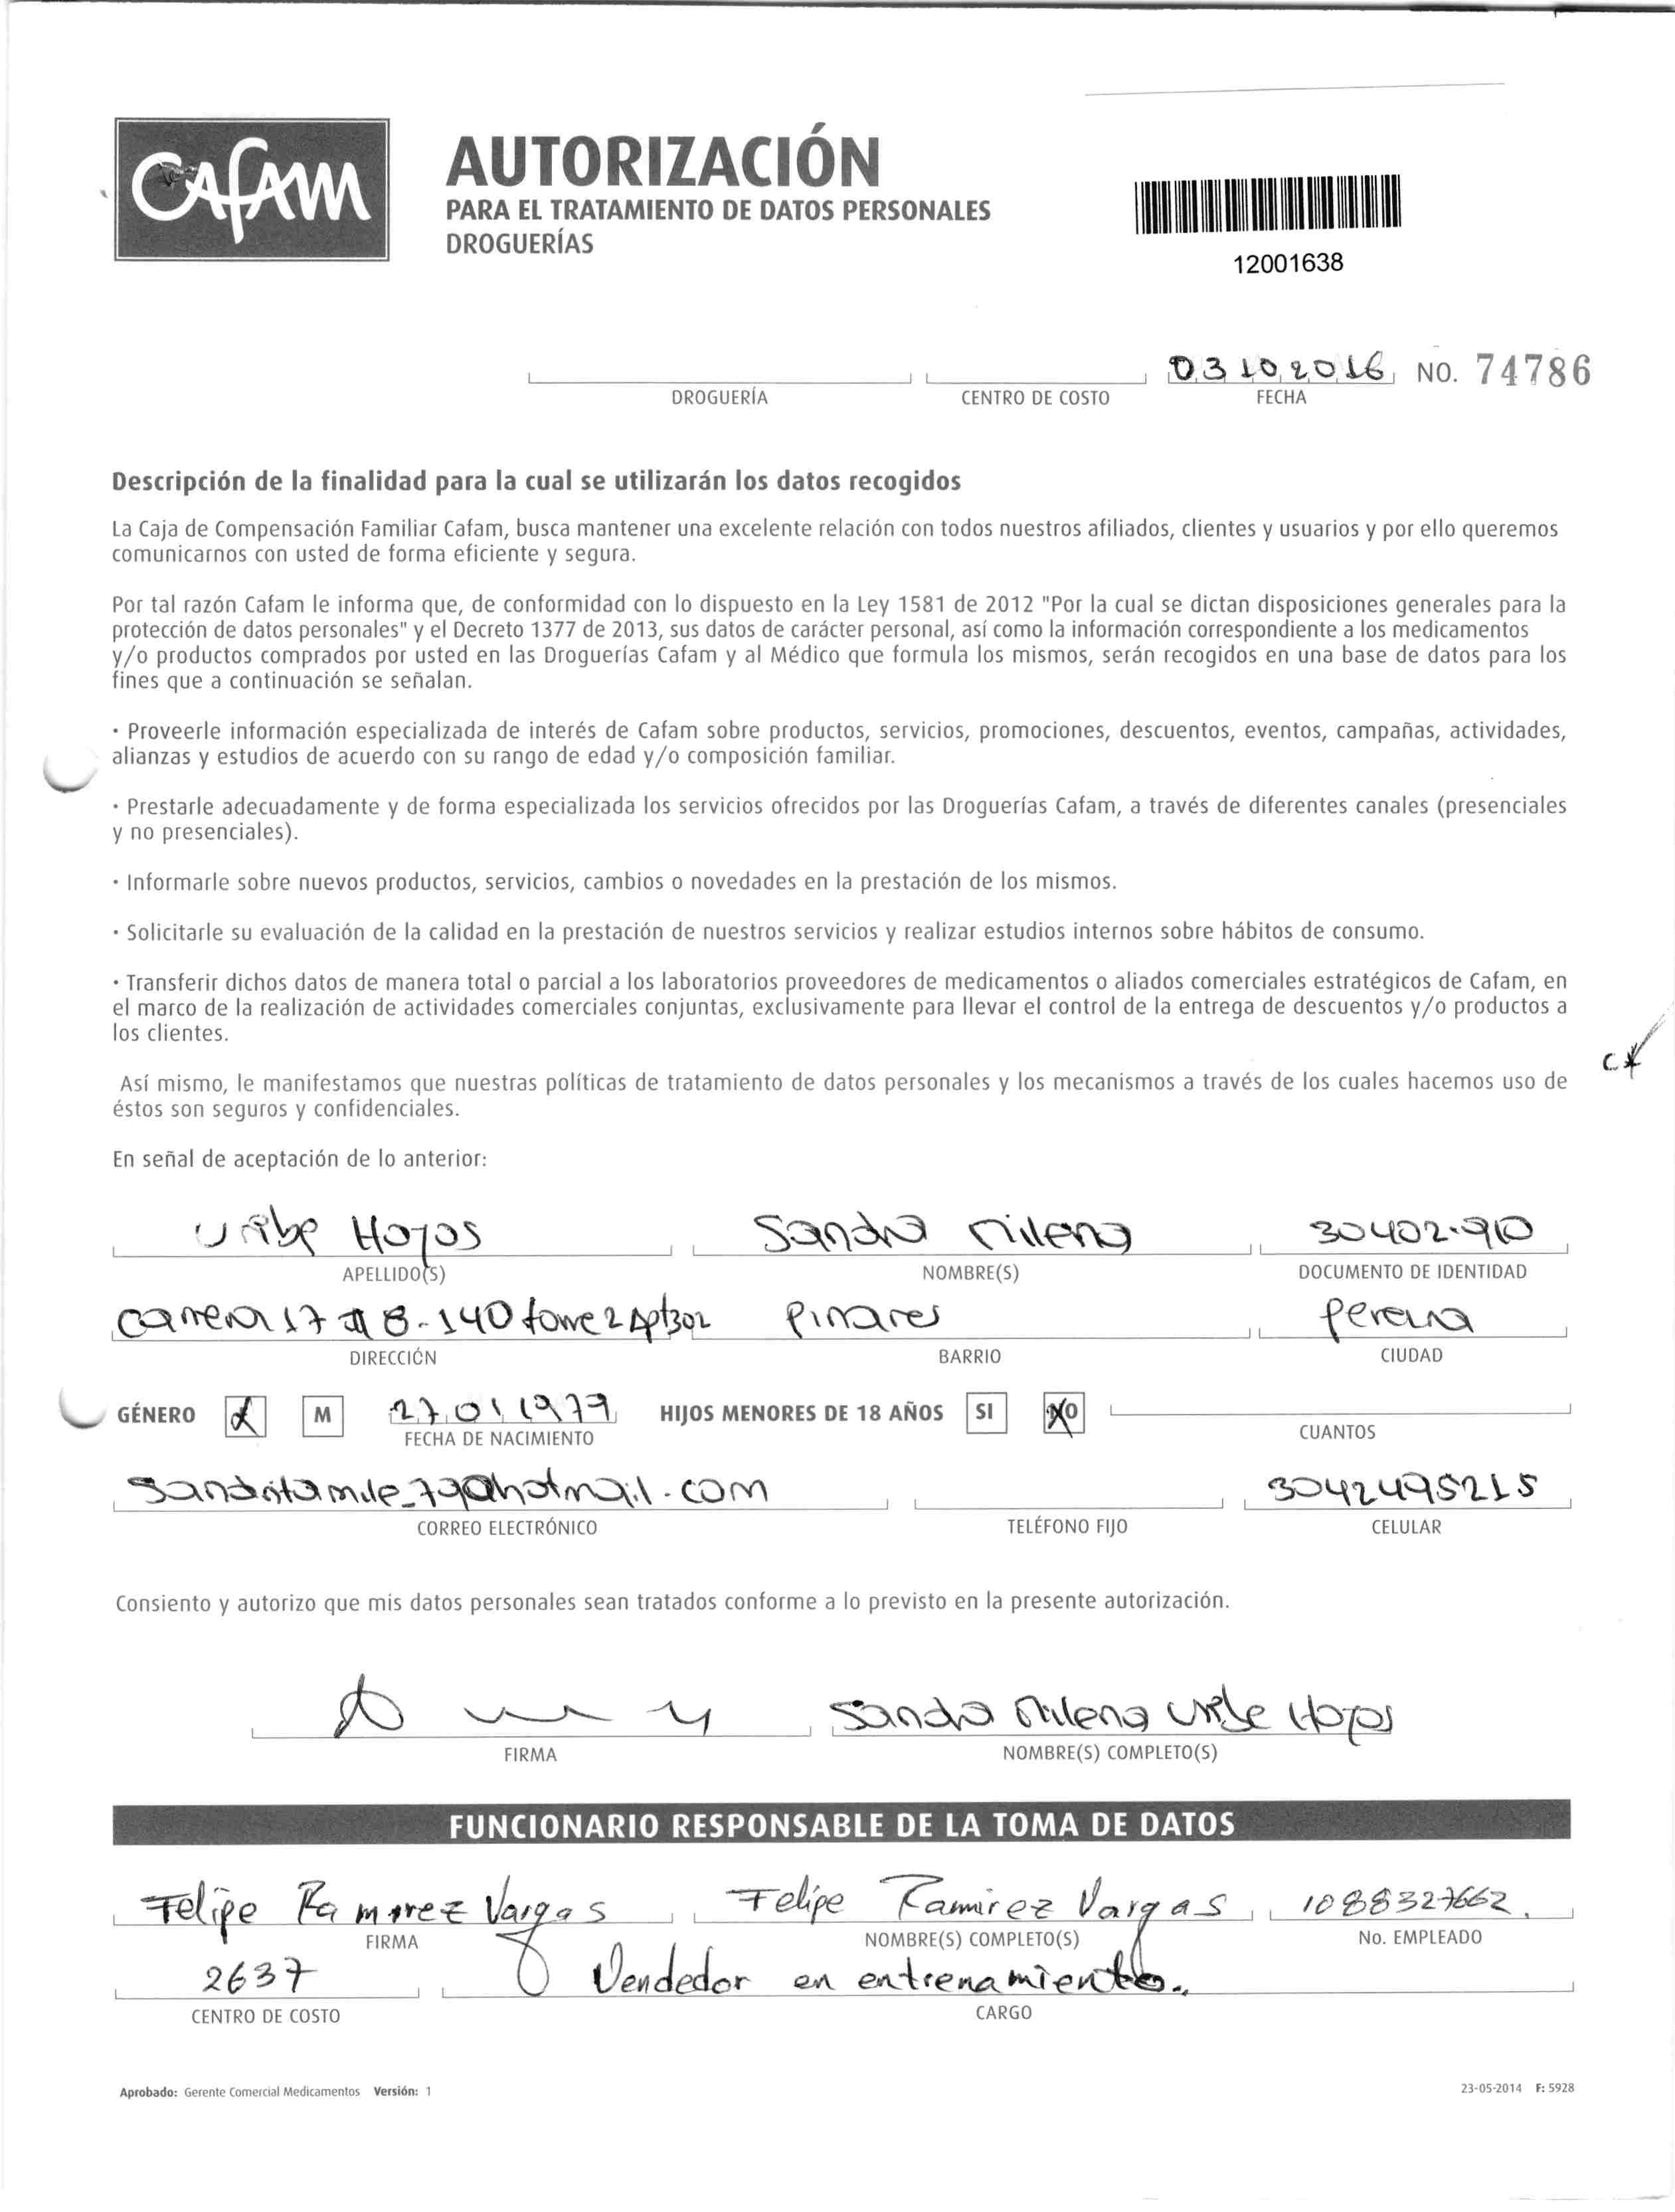 Cafam
AUTORIZACIÓN
PARA EL TRATAMIENTO DE DATOS PERSONALES
DROGUERÍAS
12001638
03102016 NO. 74786
DROGUERÍA CENTRO DE COSTO FECHA
Descripción de la finalidad para la cual se utilizarán los datos recogidos
La Caja de Compensación Familiar Cafam, busca mantener una excelente relación con todos nuestros afiliados, clientes y usuarios y por ello queremos
comunicarnos con usted de forma eficiente y segura.
Por tal razón Cafam le informa que, de conformidad con lo dispuesto en la Ley 1581 de 2012 "Por la cual se dictan disposiciones generales para la
protección de datos personales" y el Decreto 1377 de 2013, sus datos de carácter personal, así como la información correspondiente a los medicamentos
y/o productos comprados por usted en las Droguerías Cafam y al Médico que formula los mismos, serán recogidos en una base de datos para los
fines que a continuación se señalan.
· Proveerle información especializada de interés de Cafam sobre productos, servicios, promociones, descuentos, eventos, campañas, actividades,
alianzas y estudios de acuerdo con su rango de edad y/o composición familiar.
· Prestarle adecuadamente y de forma especializada los servicios ofrecidos por las Droguerías Cafam, a través de diferentes canales (presenciales
y no presenciales).
· Informarle sobre nuevos productos, servicios, cambios o novedades en la prestación de los mismos.
· Solicitarle su evaluación de la calidad en la prestación de nuestros servicios y realizar estudios internos sobre hábitos de consumo.
· Transferir dichos datos de manera total o parcial a los laboratorios proveedores de medicamentos o aliados comerciales estratégicos de Cafam, en
el marco de la realización de actividades comerciales conjuntas, exclusivamente para llevar el control de la entrega de descuentos y/o productos a
los clientes.
Así mismo, le manifestamos que nuestras políticas de tratamiento de datos personales y los mecanismos a través de los cuales hacemos uso de
éstos son seguros y confidenciales.
En señal de aceptación de lo anterior:
Uribe Hoyos Sandra Milena 30402.910
APELLIDO(S) NOMBRE(S) DOCUMENTO DE IDENTIDAD
Carrera 17 # 8-140 torre 2 Apt 302 Pinares Pereira
DIRECCIÓN BARRIO CIUDAD
GÉNERO M 27011979 HIJOS MENORES DE 18 AÑOS SI NO
FECHA DE NACIMIENTO CUANTOS
Sandritamile_79@hotmail.com 3042495215
CORREO ELECTRÓNICO TELÉFONO FIJO CELULAR
Consiento y autorizo que mis datos personales sean tratados conforme a lo previsto en la presente autorización.
Sandra Milena Uribe Hoyos
FIRMA NOMBRE(S) COMPLETO(S)
FUNCIONARIO RESPONSABLE DE LA TOMA DE DATOS
Felipe Ramirez Vargas Felipe Ramirez Vargas 1088327662.
FIRMA NOMBRE(S) COMPLETO(S) No. EMPLEADO
2637 Vendedor en entrenamiento.
CENTRO DE COSTO CARGO
Aprobado: Gerente Comercial Medicamentos Versión: 1 23-05-2014 F: 5928